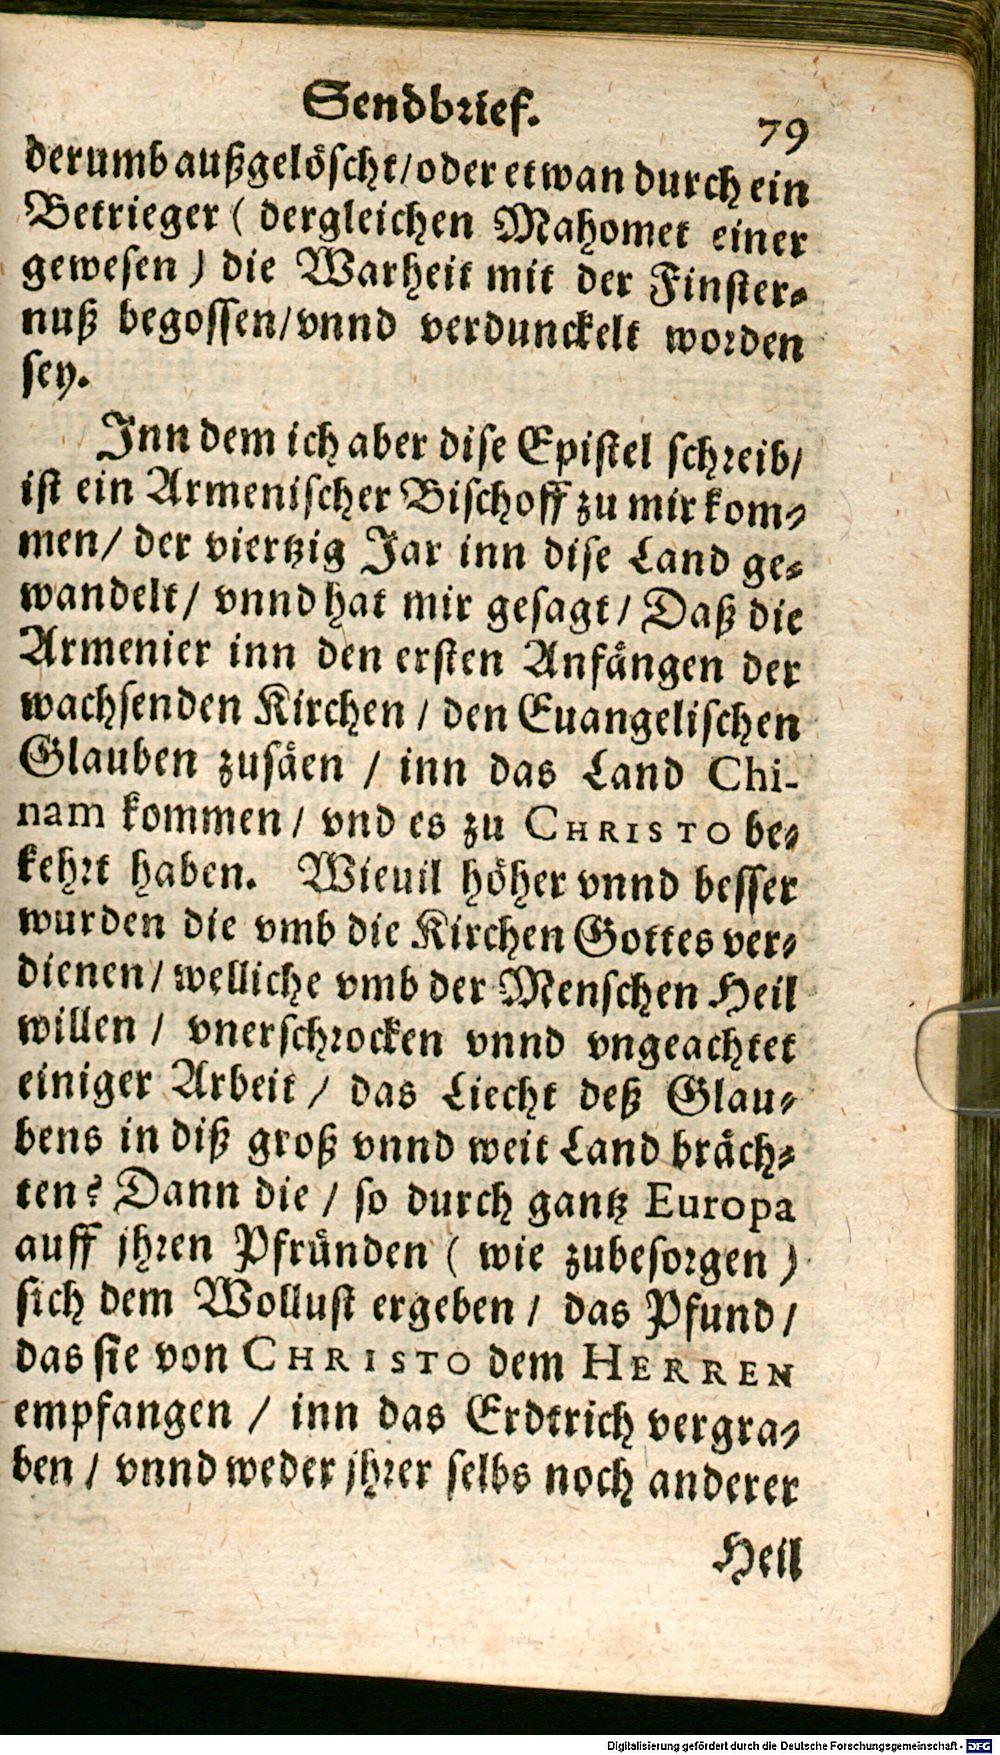 Sendbrief. 79
derumb außgelöscht/oder etwan durch ein
Betrieger ( dergleichen Mahomet einer
gewesen ) die Warheit mit der Finster-
nuß begossen/vnnd verdunckelt worden
sey.
Inn dem ich aber dise Epistel schreib/
ist ein Armenischer Bischoff zu mir kom-
men/ der viertzig Jar inn dise Land ge-
wandelt/ vnnd hat mir gesagt/ Daß die
Armenier inn den ersten Anfängen der
wachsenden Kirchen / den Euangelischen
Glauben zusäen / inn das Land Chi-
nam kommen/ vnd es zu CHRISTO be-
kehrt haben. Wieuil höher vnnd besser
wurden die vmb die Kirchen Gottes ver-
dienen/ welliche vmb der Menschen Heil
willen / vnerschrocken vnnd vngeachtet
einiger Arbeit / das Liecht deß Glau-
bens in diß groß vnnd weit Land bräch-
ten? Dann die / so durch gantz Europa
auff jhren Pfründen ( wie zubesorgen )
sich dem Wollust ergeben / das Pfund /
das sie von CHRISTO dem HERREN
empfangen / inn das Erdtrich vergra-
ben / vnnd weder jhrer selbs noch anderer
Heil
Digitalisierung gefördert durch die Deutsche Forschungsgemeinschaft - DFG